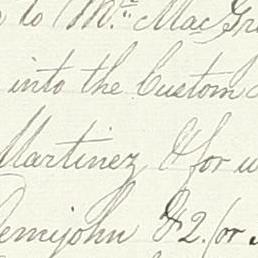 to Mrs. MacGr
into the Custom
Martinez & for w
Demijohn & 2. for